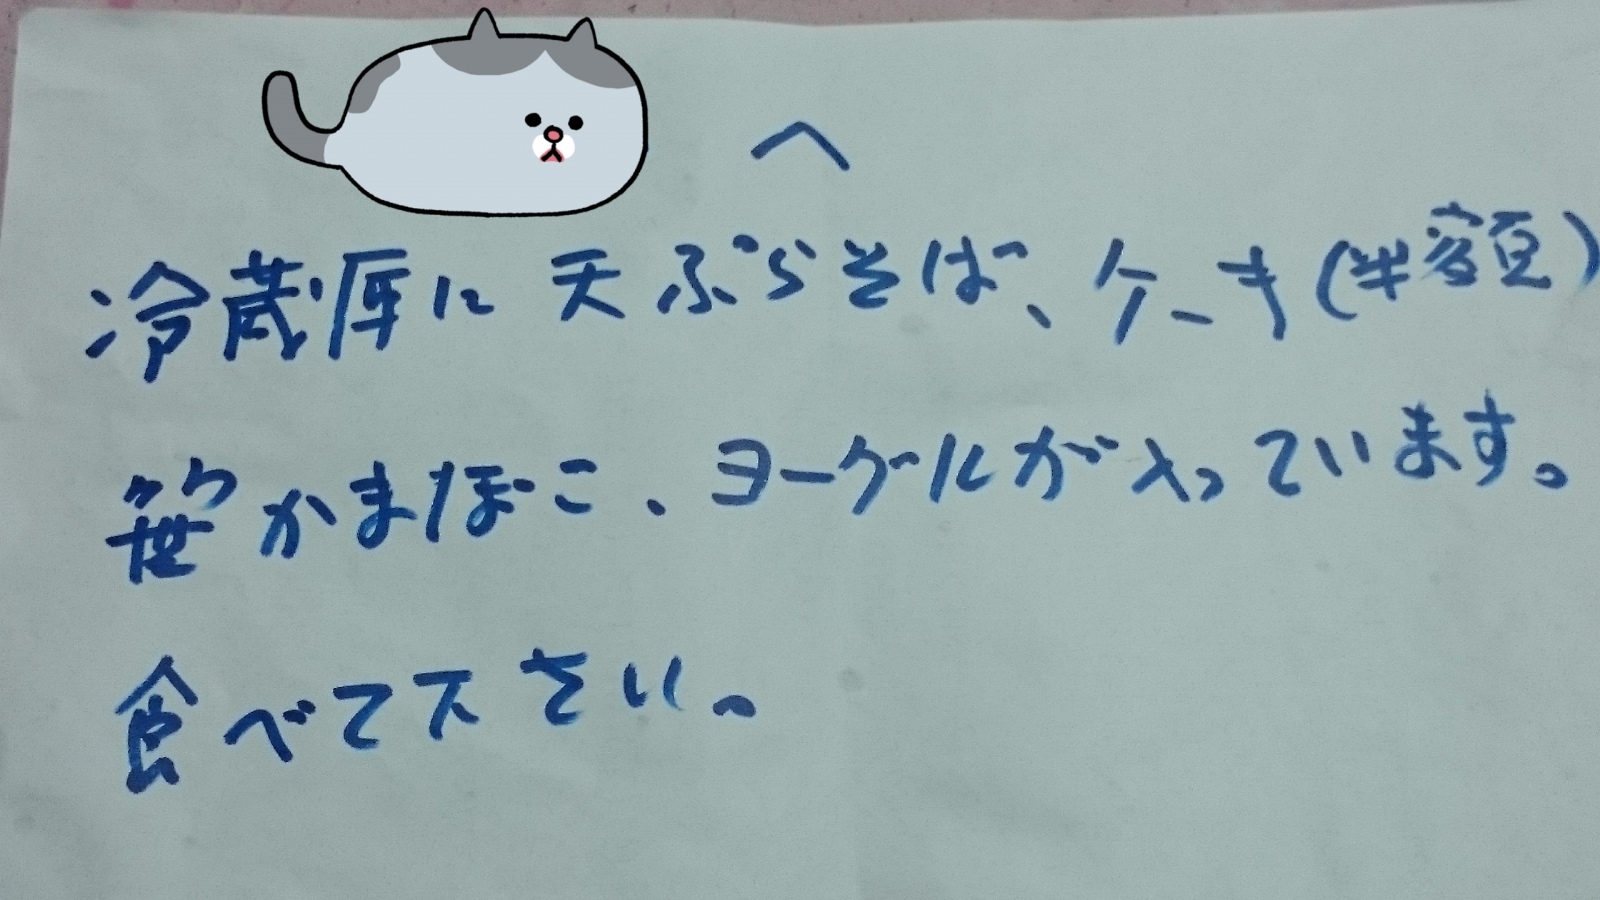 へ
冷蔵庫に天ぷらそば、ケーキ(半額)
笹かまぼこ、ヨーグルが入っています。
食べて下さい。